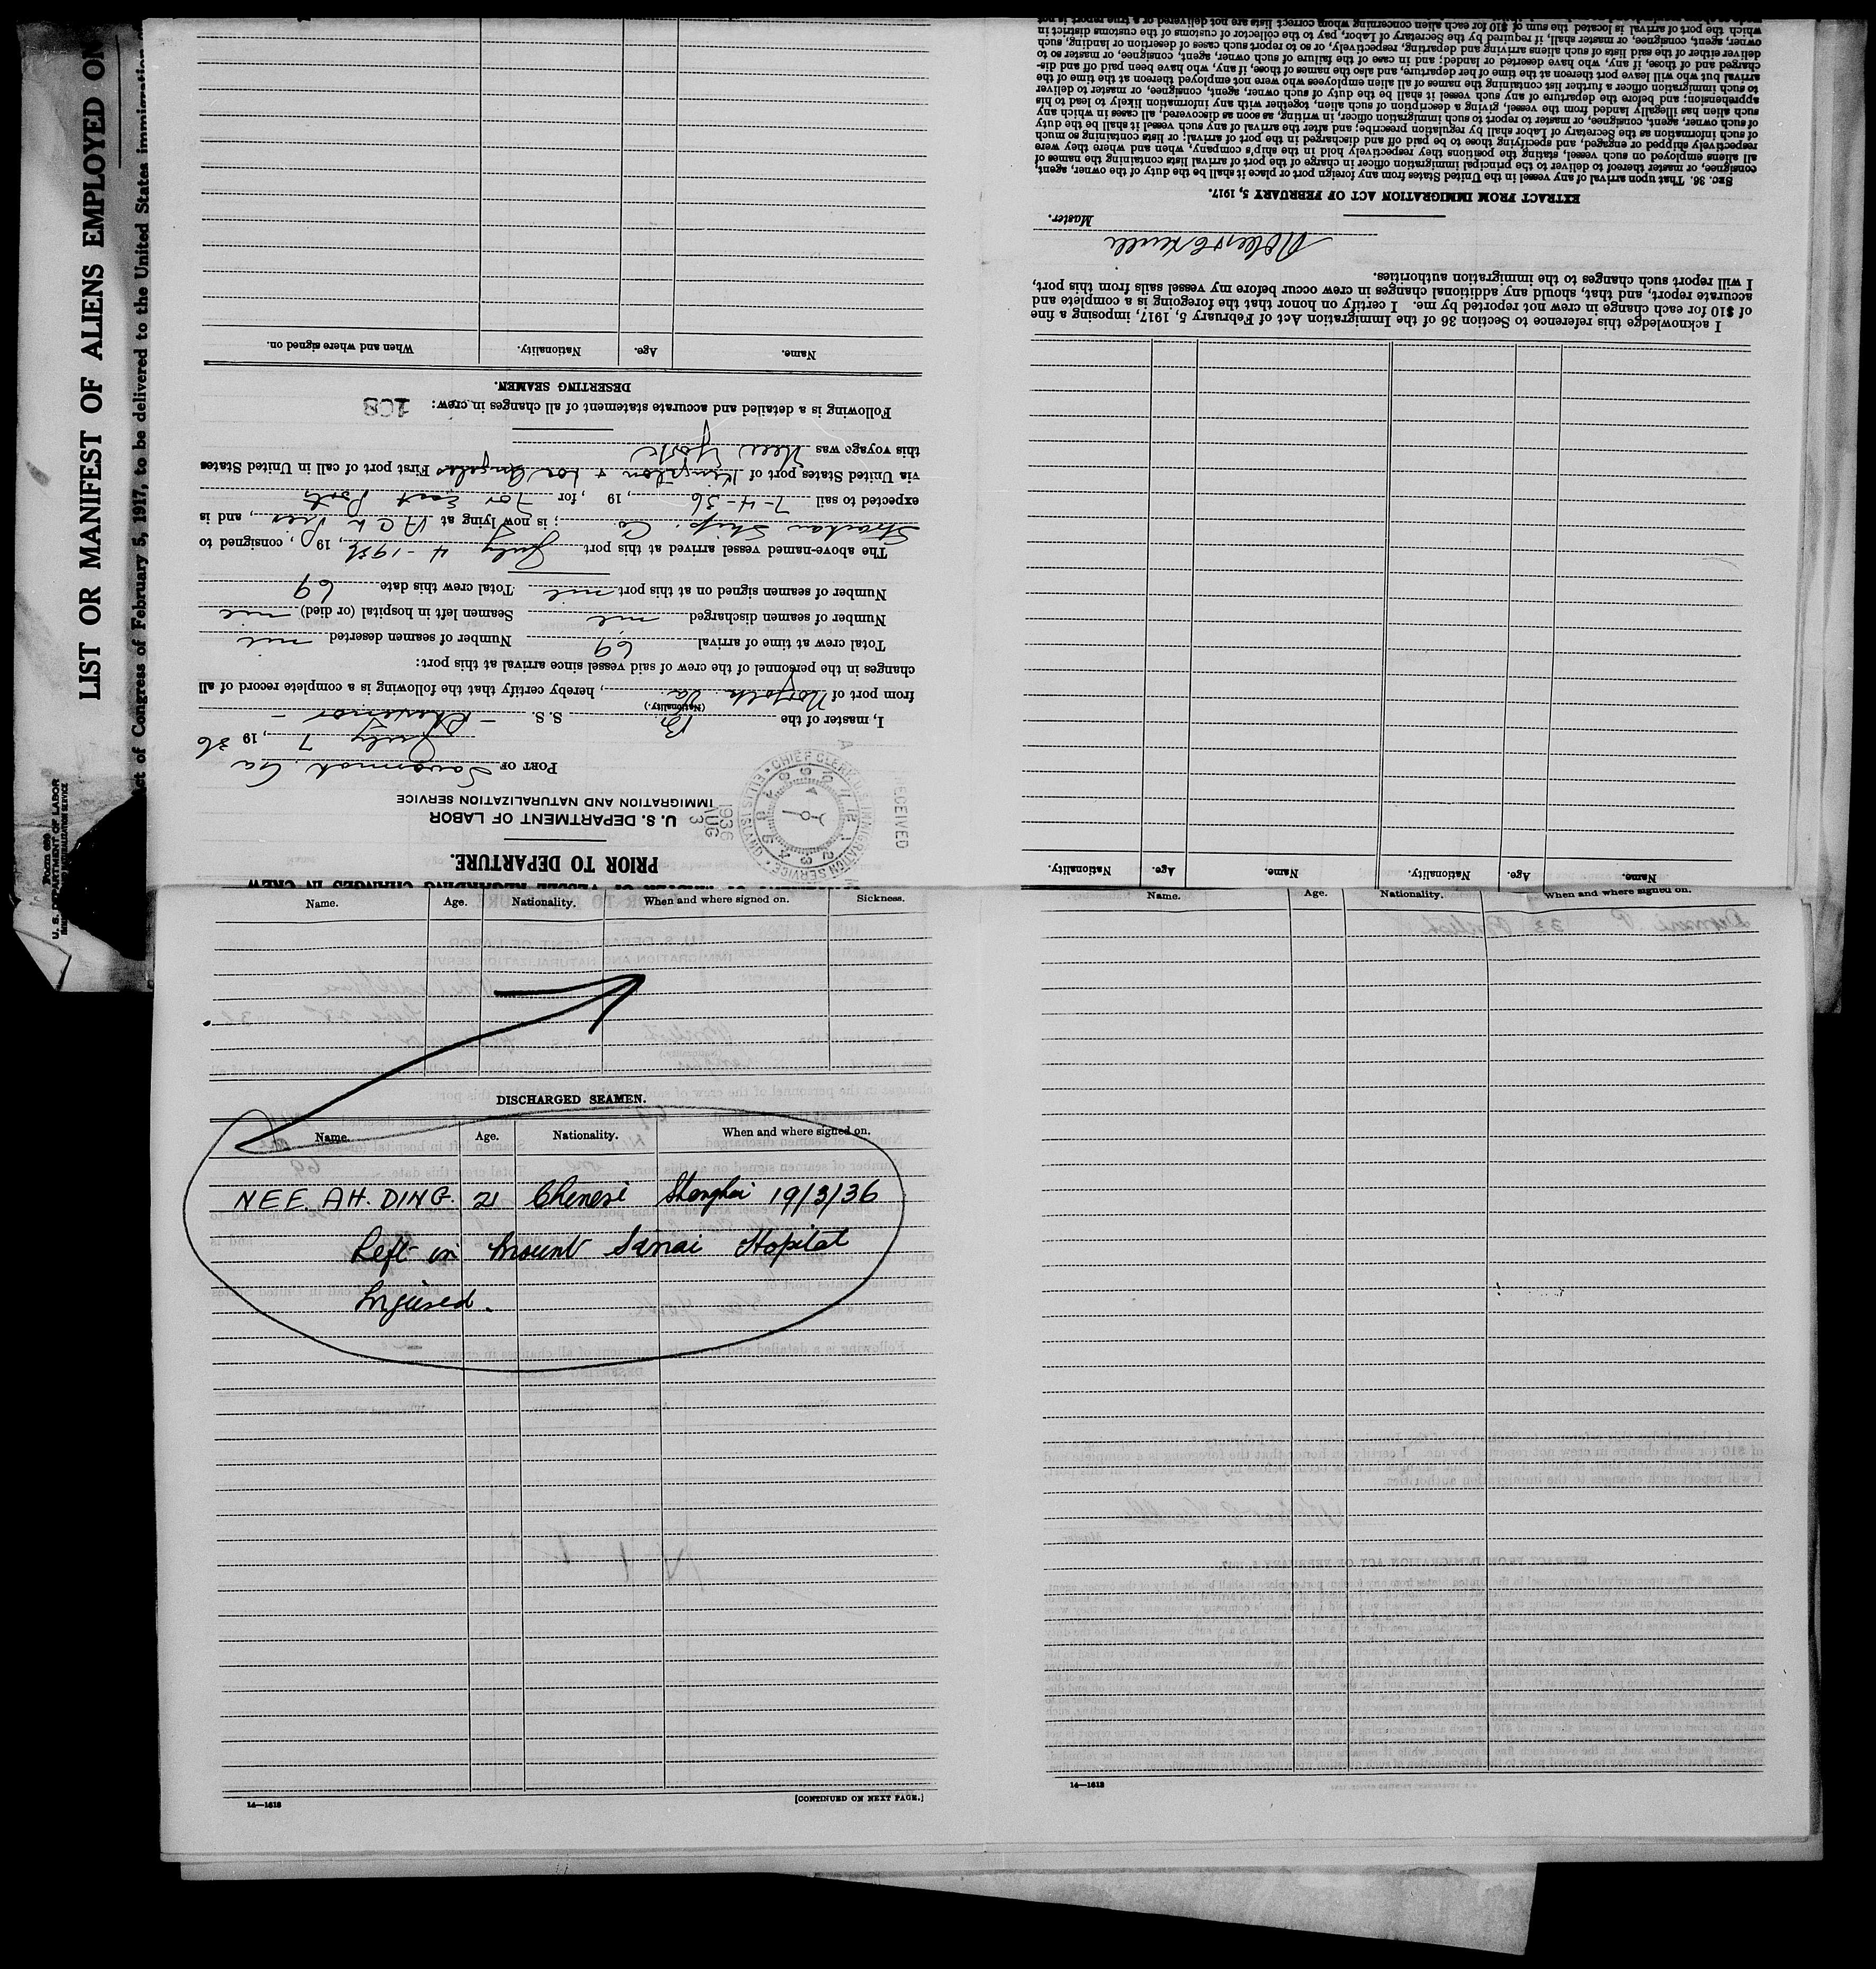 LIST OR MANIFEST OF ALIENS EMPLOYED ON
ct of Congress of February 5, 1917, to be delivered to the United States immigration
Form 689
U. S. DEPARTMENT OF LABOR
PRIOR TO DEPARTURE.
U. S. DEPARTMENT OF LABOR
IMMIGRATION AND NATURALIZATION SERVICE
RECEIVED
AUG 3 1936
CHIEF CLERK'S
IMMIGRATION SERVICE
ELLIS ISLAND
PORT OF Savannah Ga
July 7, 1936
I, master of the Br. S. S.
(Nationality.)
from port of Norfolk Va, hereby certify that the following is a complete record of all
changes in the personnel of the crew of said vessel since arrival at this port:
Total crew at time of arrival 69 Number of seamen deserted nil
Number of seamen discharged nil Seamen left in hospital (or died) nil
Number of seamen signed on at this port nil Total crew this date 69
The above-named vessel arrived at this port July 4-1936, 19, consigned to
Strachan Ship. Co; is now lying at A C L Pier, and is
expected to sail 7-4-36, 19, for Far East Ports
via United States port of Kingston & Los Angeles First port of call in United States
this voyage was New York
Following is a detailed and accurate statement of all changes in crew: 108
DESERTING SEAMEN.
Name. Age. Nationality. When and where signed on.
Name. Age. Nationality. Name. Age. Nationality.
I acknowledge this reference to Section 36 of the Immigration Act of February 5, 1917, imposing a fine
of $10 for each change in crew not reported by me. I certify on honor that the foregoing is a complete and
accurate report, and that, should any additional changes in crew occur before my vessel sails from this port,
I will report such changes to the immigration authorities.
Master.
EXTRACT FROM IMMIGRATION ACT OF FEBRUARY 5, 1917.
SEC. 36. That upon arrival of any vessel in the United States from any foreign port or place it shall be the duty of the owner, agent,
consignee, or master thereof to deliver to the principal immigration officer in charge of the port of arrival lists containing the names of
all aliens employed on such vessel, stating the positions they respectively hold in the ship's company, when and where they were
respectively shipped or engaged, and specifying those to be paid off and discharged in the port of arrival; or lists containing so much
of such information as the Secretary of Labor shall by regulation prescribe; and after the arrival of any such vessel it shall be the duty
of such owner, agent, consignee, or master to report to such immigration officer, in writing, as soon as discovered, all cases in which any
such alien has illegally landed from the vessel, giving a description of such alien, together with any information likely to lead to his
apprehension; and before the departure of any such vessel it shall be the duty of such owner, agent, consignee, or master to deliver
to such immigration officer a further list containing the names of all alien employees who were not employed thereon at the time of the
arrival but who will leave port thereon at the time of her departure, and also the names of those, if any, who have been paid off and dis-
charged and of those, if any, who have deserted or landed; and in case of the failure of such owner, agent, consignee, or master so to
deliver either of the said lists of such aliens arriving and departing, respectively, or so to report such cases of desertion or landing, such
owner, agent, consignee, or master shall, if required by the Secretary of Labor, pay to the collector of customs of the customs district in
which the port of arrival is located the sum of $10 for each alien concerning whom correct lists are not delivered or a true report is not
Name. Age. Nationality. When and where signed on. Sickness.
DISCHARGED SEAMEN.
Name. Age. Nationality. When and where signed on.
NEE. AH. DING. 21 Chenese Shanghai 19/3/36
Left in Mount Sanai Hopital
Injured.
14—1618
[CONTINUED ON NEXT PAGE.]
Name. Age. Nationality. When and where signed on.
14—1618